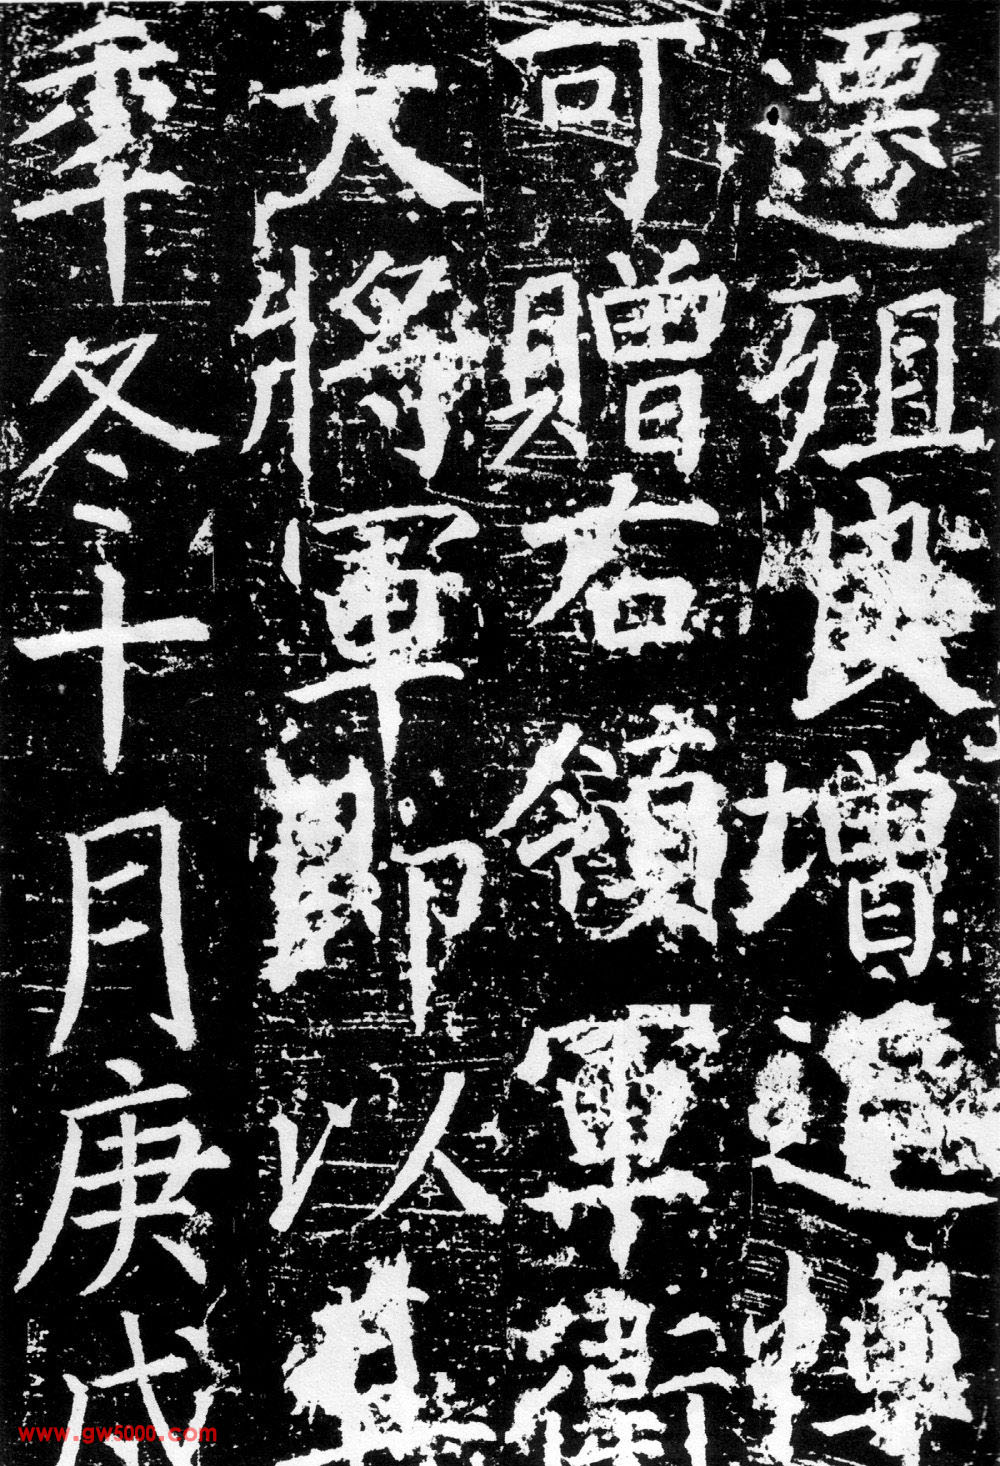 遷殂良增追悼
可贈右領軍衛
大將軍即以其
年冬十月庚戌
www.gw5000.com